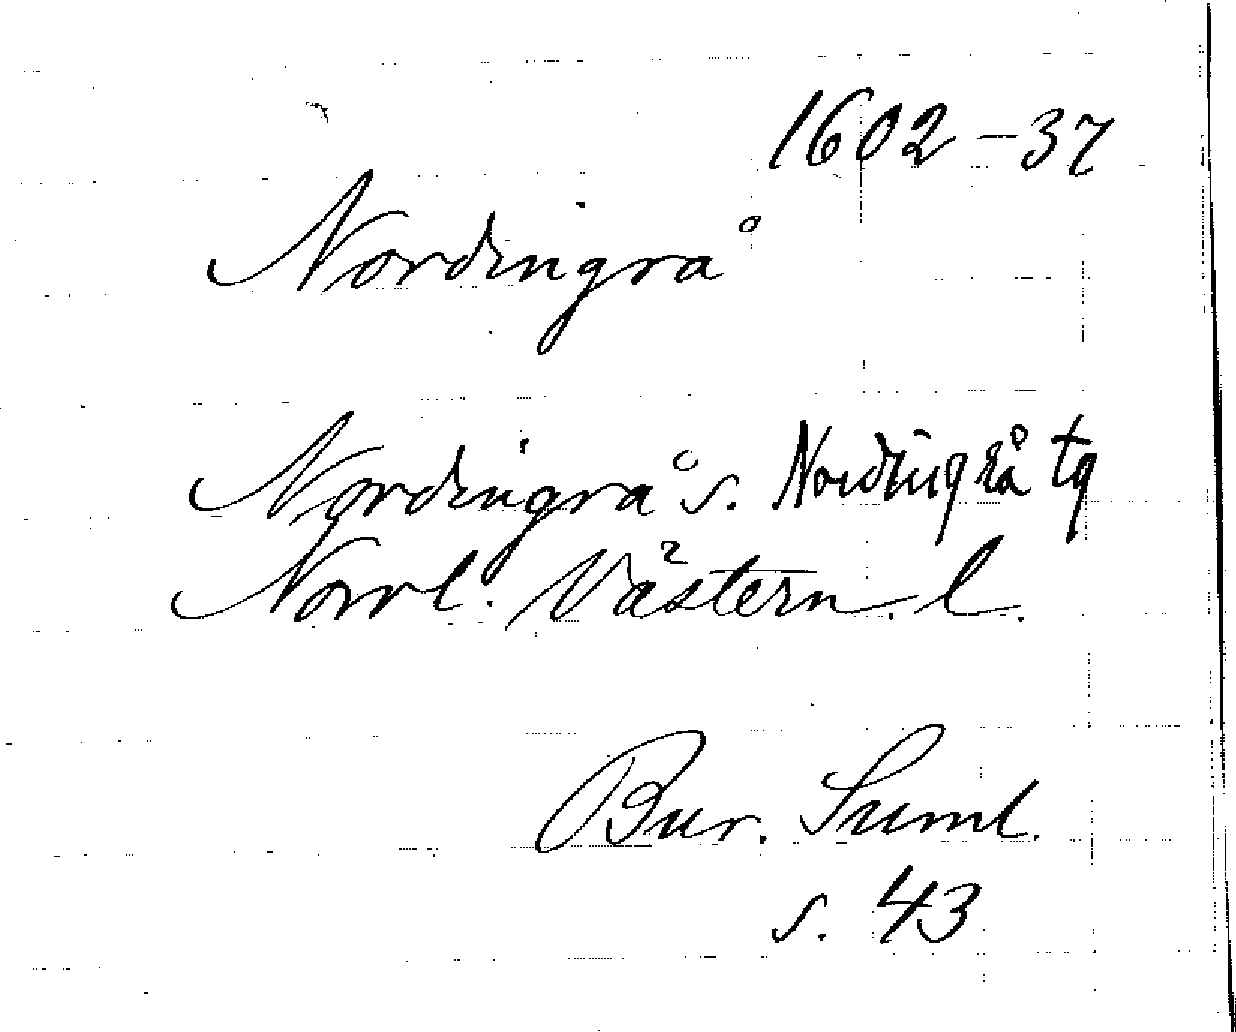 1602-37
Nordingrå
Nordingrå s. Nordingrå tg
Norrl. Västern. l.
Bur. Suml.
s. 43